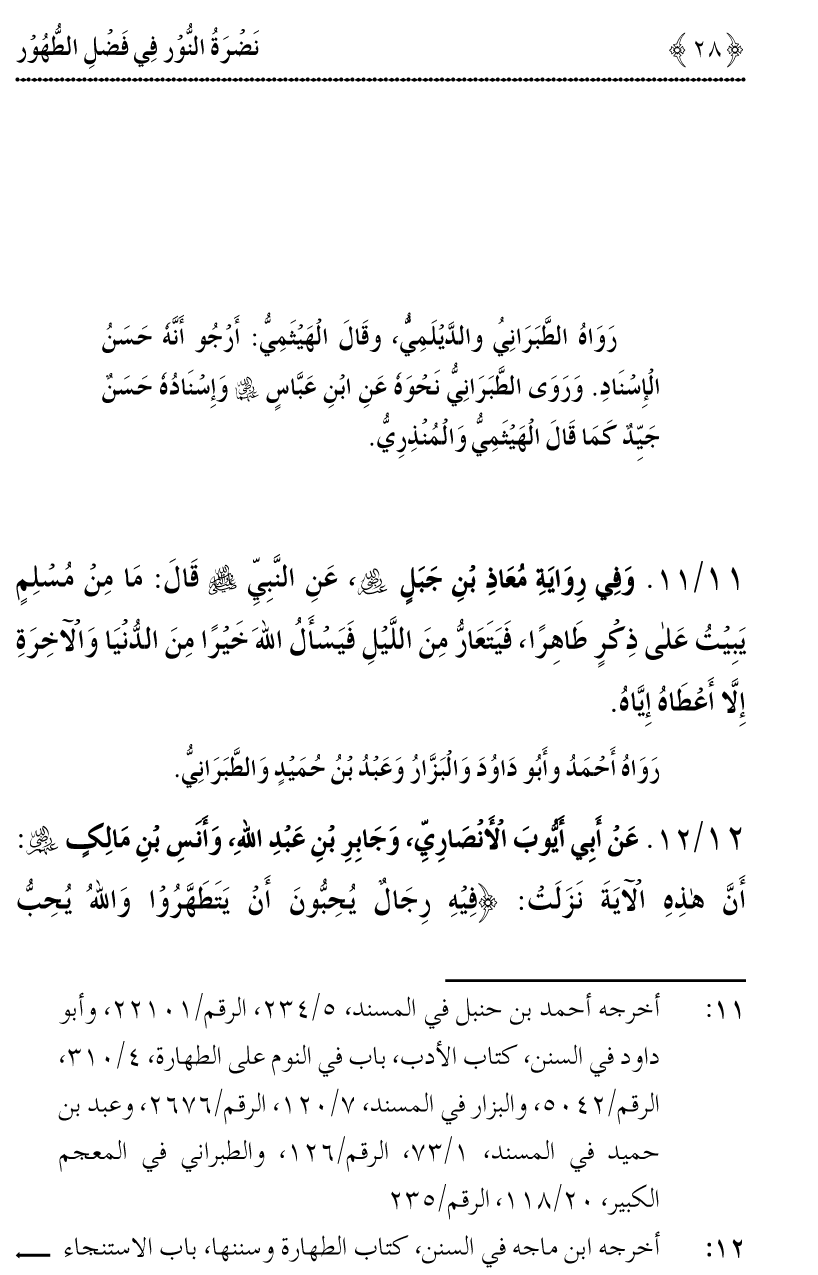 ﴿٢٨﴾ نَضْرَةُ النُّوْر فِي فَضْلِ الطُّهُوْر
رَوَاهُ الطَّبَرَانِيُ والدَّيْلَمِيُّ، وقَالَ الْهَيْثَمِيُّ: أَرْجُو أَنَّهُ حَسَنُ
الْإِسْنَادِ. وَرَوَى الطَّبَرَانِيُّ نَحْوَهُ عَنِ ابْنِ عَبَّاسٍ ﵁ وَإِسْنَادُهُ حَسَنٌ
جَيِّدٌ كَمَا قَالَ الْهَيْثَمِيُّ وَالْمُنْذِرِيُّ.
١١/١١. وَفِي رِوَايَةِ مُعَاذِ بْنِ جَبَلٍ ﵁، عَنِ النَّبِيِّ ﷺ قَالَ: مَا مِنْ مُسْلِمٍ
يَبِيْتُ عَلٰى ذِكْرٍ طَاهِرًا، فَيَتَعَارُّ مِنَ اللَّيْلِ فَيَسْأَلُ اللهَ خَيْرًا مِنَ الدُّنْيَا وَالْآخِرَةِ
إِلَّا أَعْطَاهُ إِيَّاهُ.
رَوَاهُ أَحْمَدُ وأَبُو دَاوُدَ وَالْبَزَّارُ وَعَبْدُ بْنُ حُمَيْدٍ وَالطَّبَرَانِيُّ.
١٢/١٢. عَنْ أَبِي أَيُّوبَ الْأَنْصَارِيِّ، وَجَابِرِ بْنِ عَبْدِ اللهِ، وَأَنَسِ بْنِ مَالِكٍ ﵃:
أَنَّ هٰذِهِ الْآيَةَ نَزَلَتْ: ﴿فِيْهِ رِجَالٌ يُحِبُّونَ أَنْ يَتَطَهَّرُوْا وَاللهُ يُحِبُّ
١١: أخرجه أحمد بن حنبل في المسند، ٢٣٤/٥، الرقم/٢٢١٠١، وأبو
داود في السنن، كتاب الأدب، باب في النوم على الطهارة، ٣١٠/٤،
الرقم/٥٠٤٢، والبزار في المسند، ١٢٠/٧، الرقم/٢٦٧٦، وعبد بن
حميد في المسند، ٧٣/١، الرقم/١٢٦، والطبراني في المعجم
الكبير، ١١٨/٢٠، الرقم/٢٣٥
١٢: أخرجه ابن ماجه في السنن، كتاب الطهارة وسننها، باب الاستنجاء